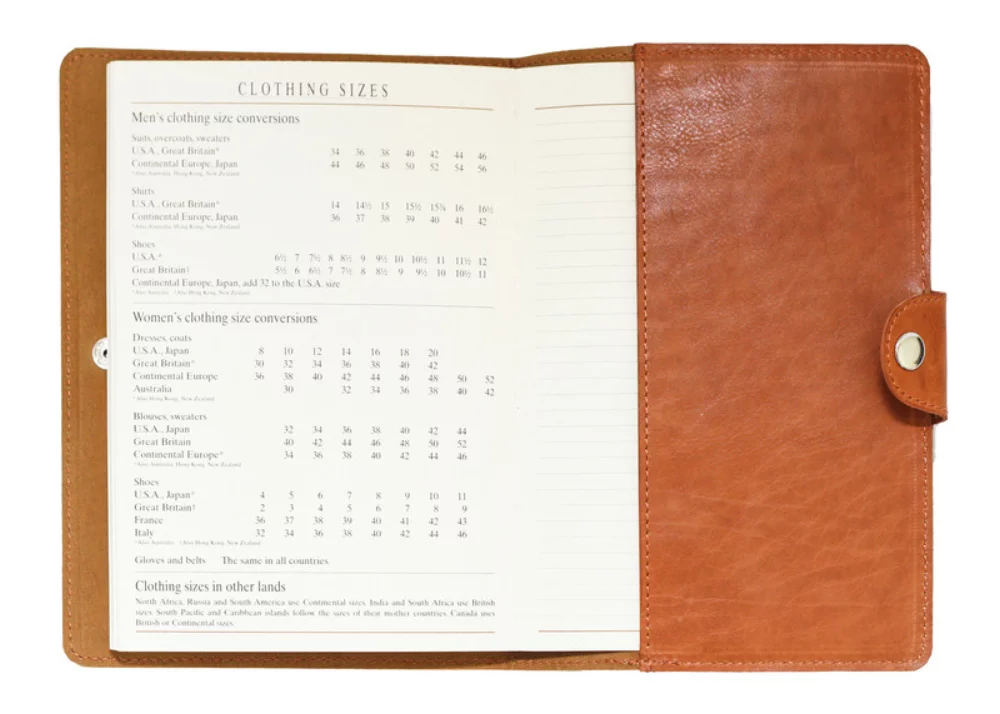 CLOTHING SIZES
Men's clothing size conversions
Suits, overcoats, sweaters
U.S.A., Great Britain* 34 36 38 40 42 44 46
Continental Europe, Japan 44 46 48 50 52 54 56
*Also Australia, Hong Kong, New Zealand
Shirts
U.S.A., Great Britain* 14 14½ 15 15½ 15¾ 16 16½
Continental Europe, Japan 36 37 38 39 40 41 42
*Also Australia, Hong Kong, New Zealand
Shoes
U.S.A.* 6½ 7 7½ 8 8½ 9 9½ 10 10½ 11 11½ 12
Great Britain† 5½ 6 6½ 7 7½ 8 8½ 9 9½ 10 10½ 11
Continental Europe, Japan, add 32 to the U.S.A. size
*Also Australia †Also Hong Kong, New Zealand
Women's clothing size conversions
Dresses, coats
U.S.A., Japan 8 10 12 14 16 18 20
Great Britain* 30 32 34 36 38 40 42
Continental Europe 36 38 40 42 44 46 48 50 52
Australia 30 32 34 36 38 40 42
*Also Hong Kong, New Zealand
Blouses, sweaters
U.S.A., Japan 32 34 36 38 40 42 44
Great Britain 40 42 44 46 48 50 52
Continental Europe* 34 36 38 40 42 44 46
*Also Australia, Hong Kong, New Zealand
Shoes
U.S.A., Japan* 4 5 6 7 8 9 10 11
Great Britain† 2 3 4 5 6 7 8 9
France 36 37 38 39 40 41 42 43
Italy 32 34 36 38 40 42 44 46
*Also Australia †Also Hong Kong, New Zealand
Gloves and belts The same in all countries
Clothing sizes in other lands
North Africa, Russia and South America use Continental sizes. India and South Africa use British
sizes. South Pacific and Caribbean islands follow the sizes of their mother countries. Canada uses
British or Continental sizes.